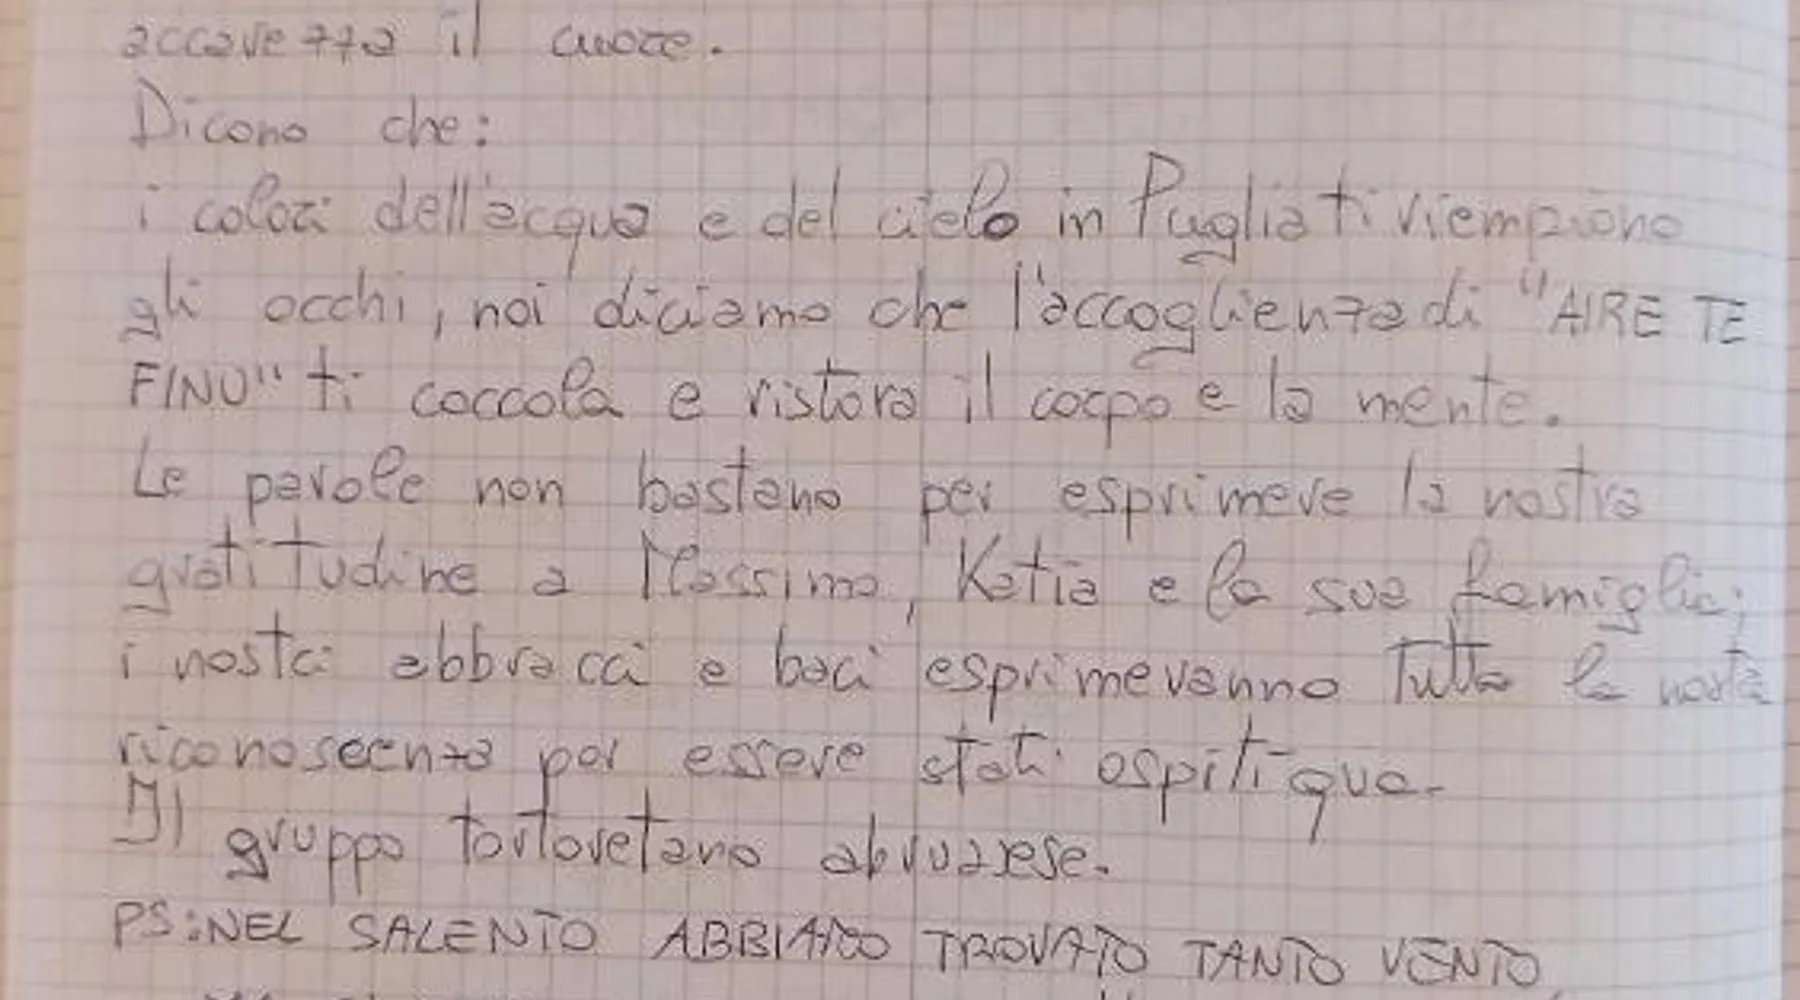 accavezza il cuore.
Dicono che:
i colori dell'acqua e del cielo in Puglia ti riempiono
gli occhi, noi diciamo che l'accoglienza di "AIRE TE
FINU" ti coccola e ristora il corpo e la mente.
Le parole non bastano per esprimere la nostra
gratitudine a Massimo, Katia e la sua famiglia;
i nostri abbracci e baci esprimeranno tutta la nostra
riconoscenza per essere stati ospiti qua.
Il gruppo tortoretano abruzzese.
PS: NEL SALENTO ABBIAMO TROVATO TANTO VENTO,